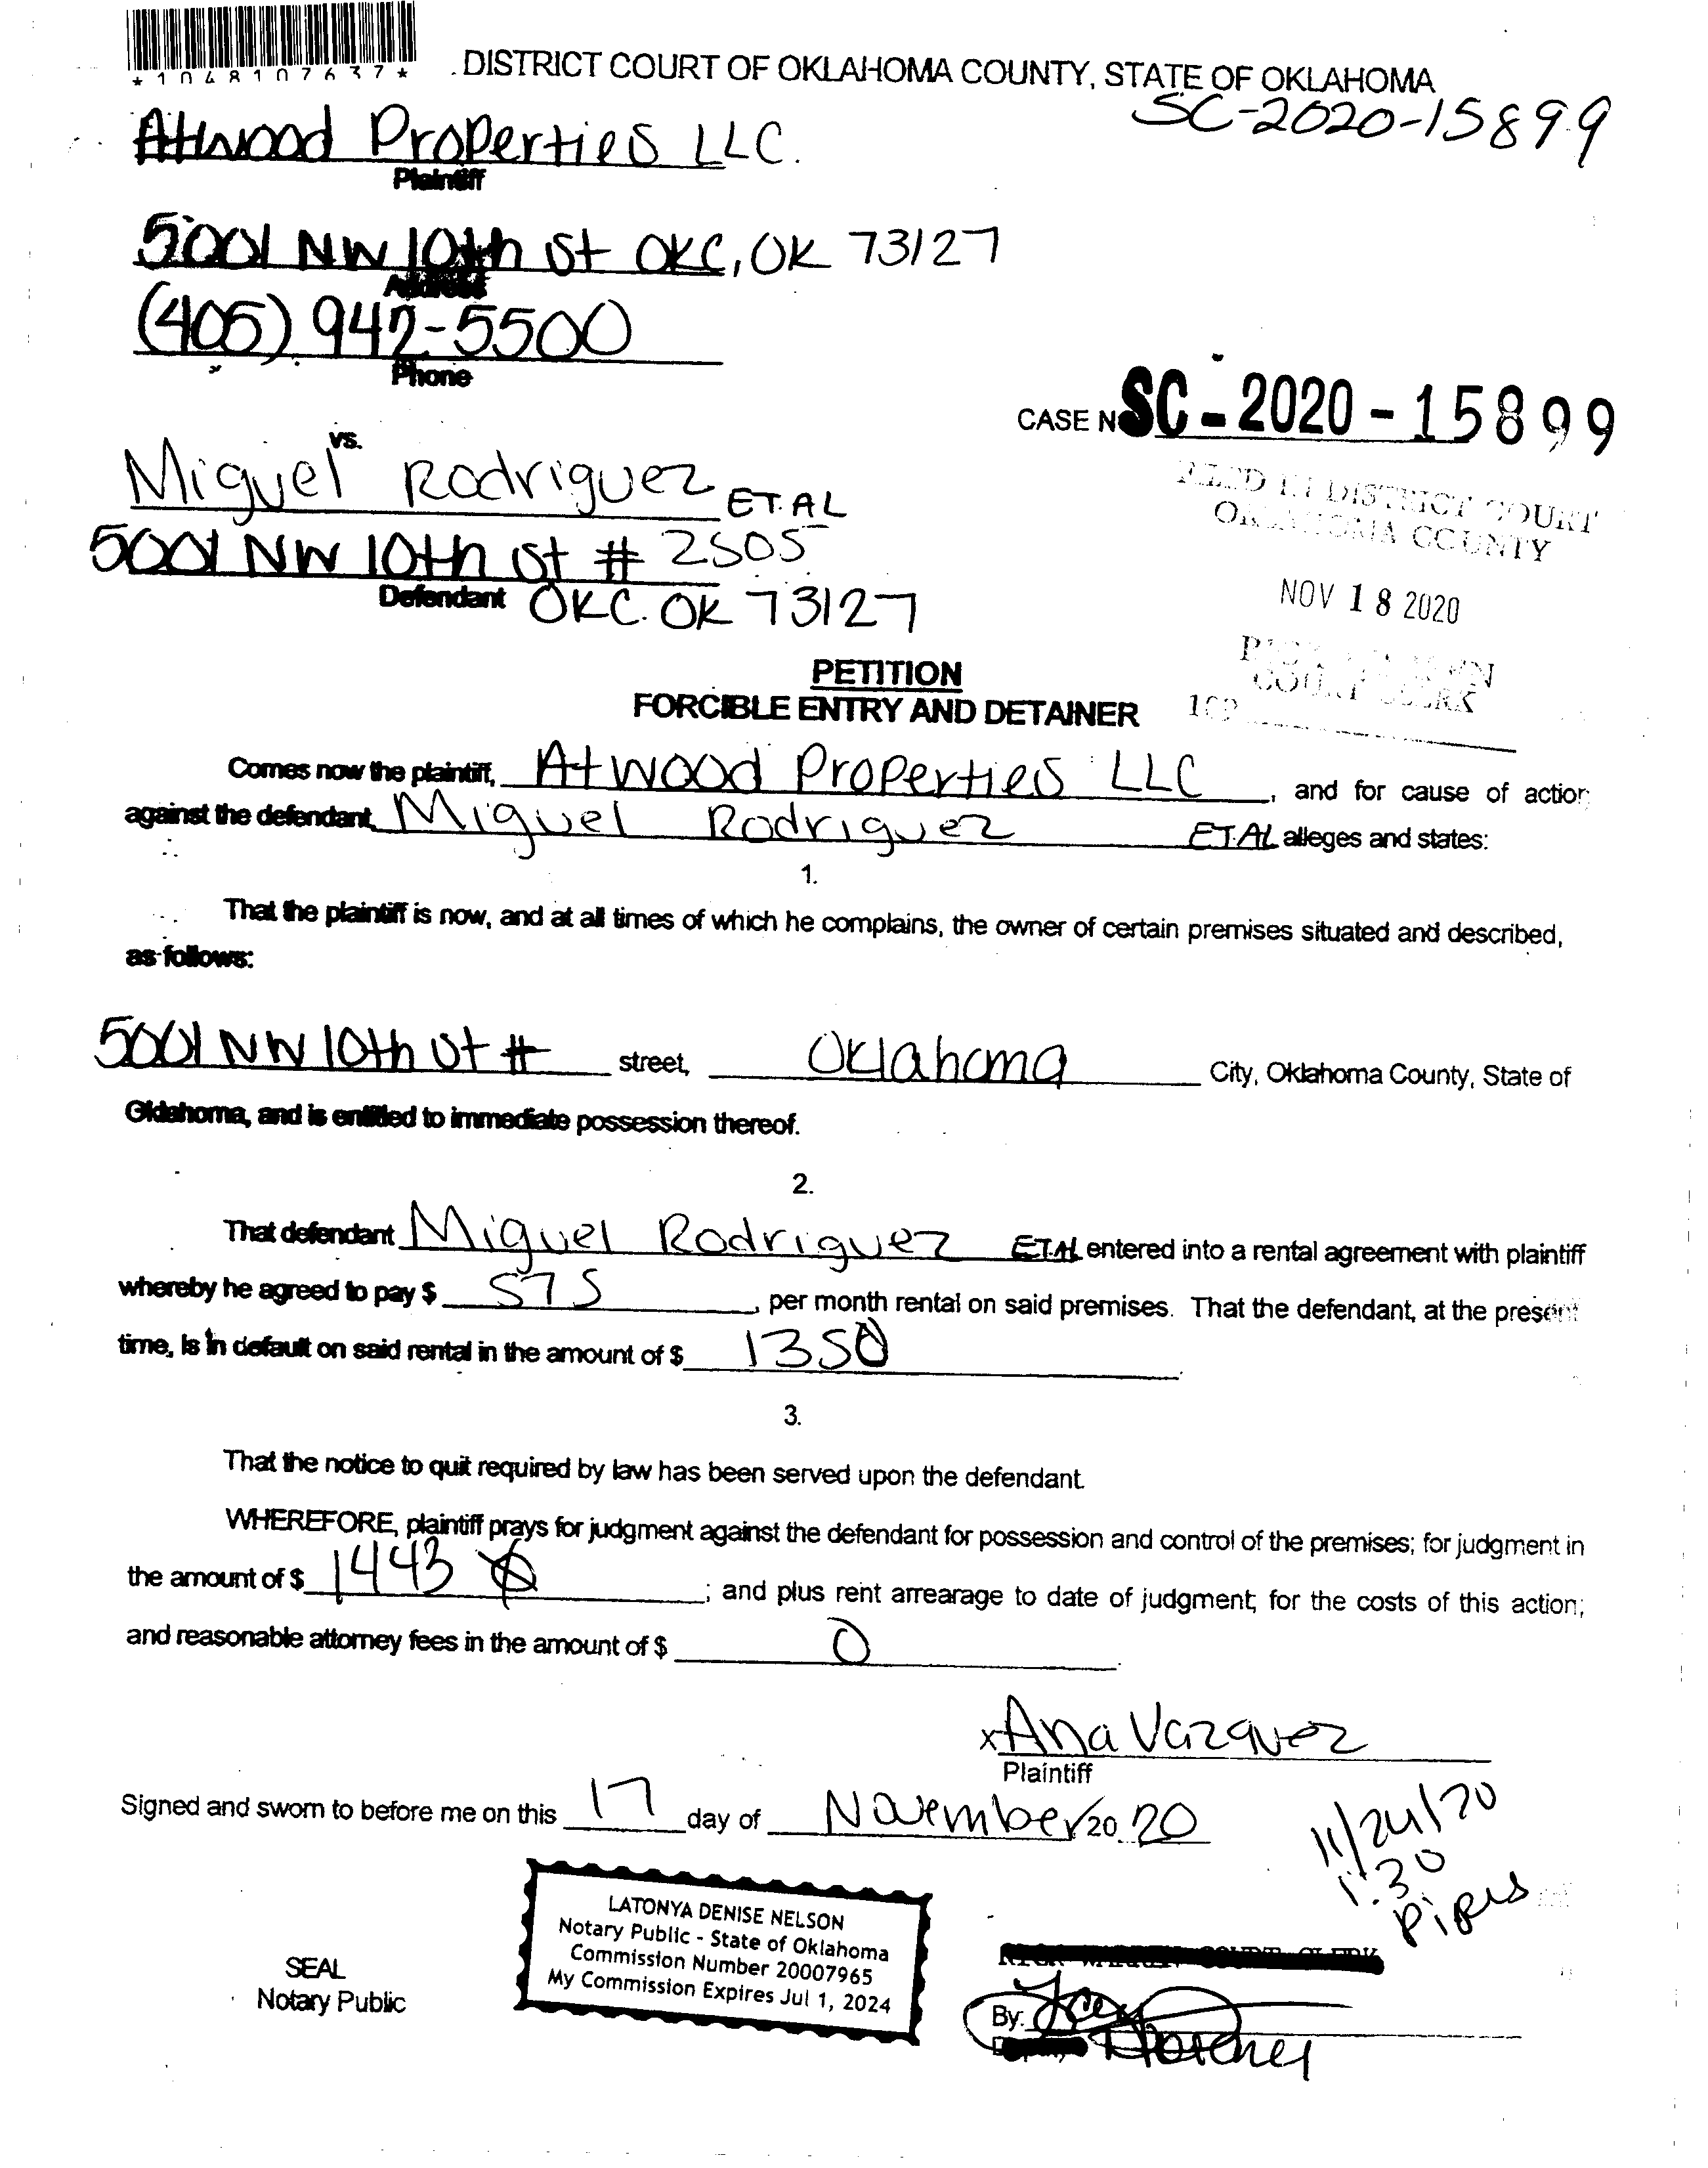 *1048107637*
DISTRICT COURT OF OKLAHOMA COUNTY, STATE OF OKLAHOMA
SC-2020-15899
Atwood Properties LLC.
Plaintiff
5001 NW 10th St OKC, OK 73127
Address
(405) 942-5500
Phone
CASE N SC-2020-15899
vs.
Miguel Rodriguez ET.AL
5001 NW 10th St # 2505
Defendant OKC. OK 73127
FILED IN DISTRICT COURT
OKLAHOMA COUNTY
NOV 18 2020
COURT CLERK
PETITION
FORCIBLE ENTRY AND DETAINER
Comes now the plaintiff, Atwood Properties LLC, and for cause of action
against the defendant, Miguel Rodriguez ET.AL alleges and states:
1.
That the plaintiff is now, and at all times of which he complains, the owner of certain premises situated and described,
as follows:
5001 NW 10th St # street, Oklahoma City, Oklahoma County, State of
Oklahoma, and is entitled to immediate possession thereof.
2.
That defendant Miguel Rodriguez ET.AL entered into a rental agreement with plaintiff
whereby he agreed to pay $ 575, per month rental on said premises. That the defendant, at the present
time, Is in default on said rental in the amount of $ 1350
3.
That the notice to quit required by law has been served upon the defendant.
WHEREFORE, plaintiff prays for judgment against the defendant for possession and control of the premises; for judgment in
the amount of $ 1443; and plus rent arrearage to date of judgment; for the costs of this action;
and reasonable attorney fees in the amount of $ 0
x Ana Vazquez
Plaintiff
Signed and sworn to before me on this 17 day of November 20 20
11/24/20
1:30
LATONYA DENISE NELSON
Notary Public - State of Oklahoma
Commission Number 20007965
My Commission Expires Jul 1, 2024
SEAL
Notary Public
By: